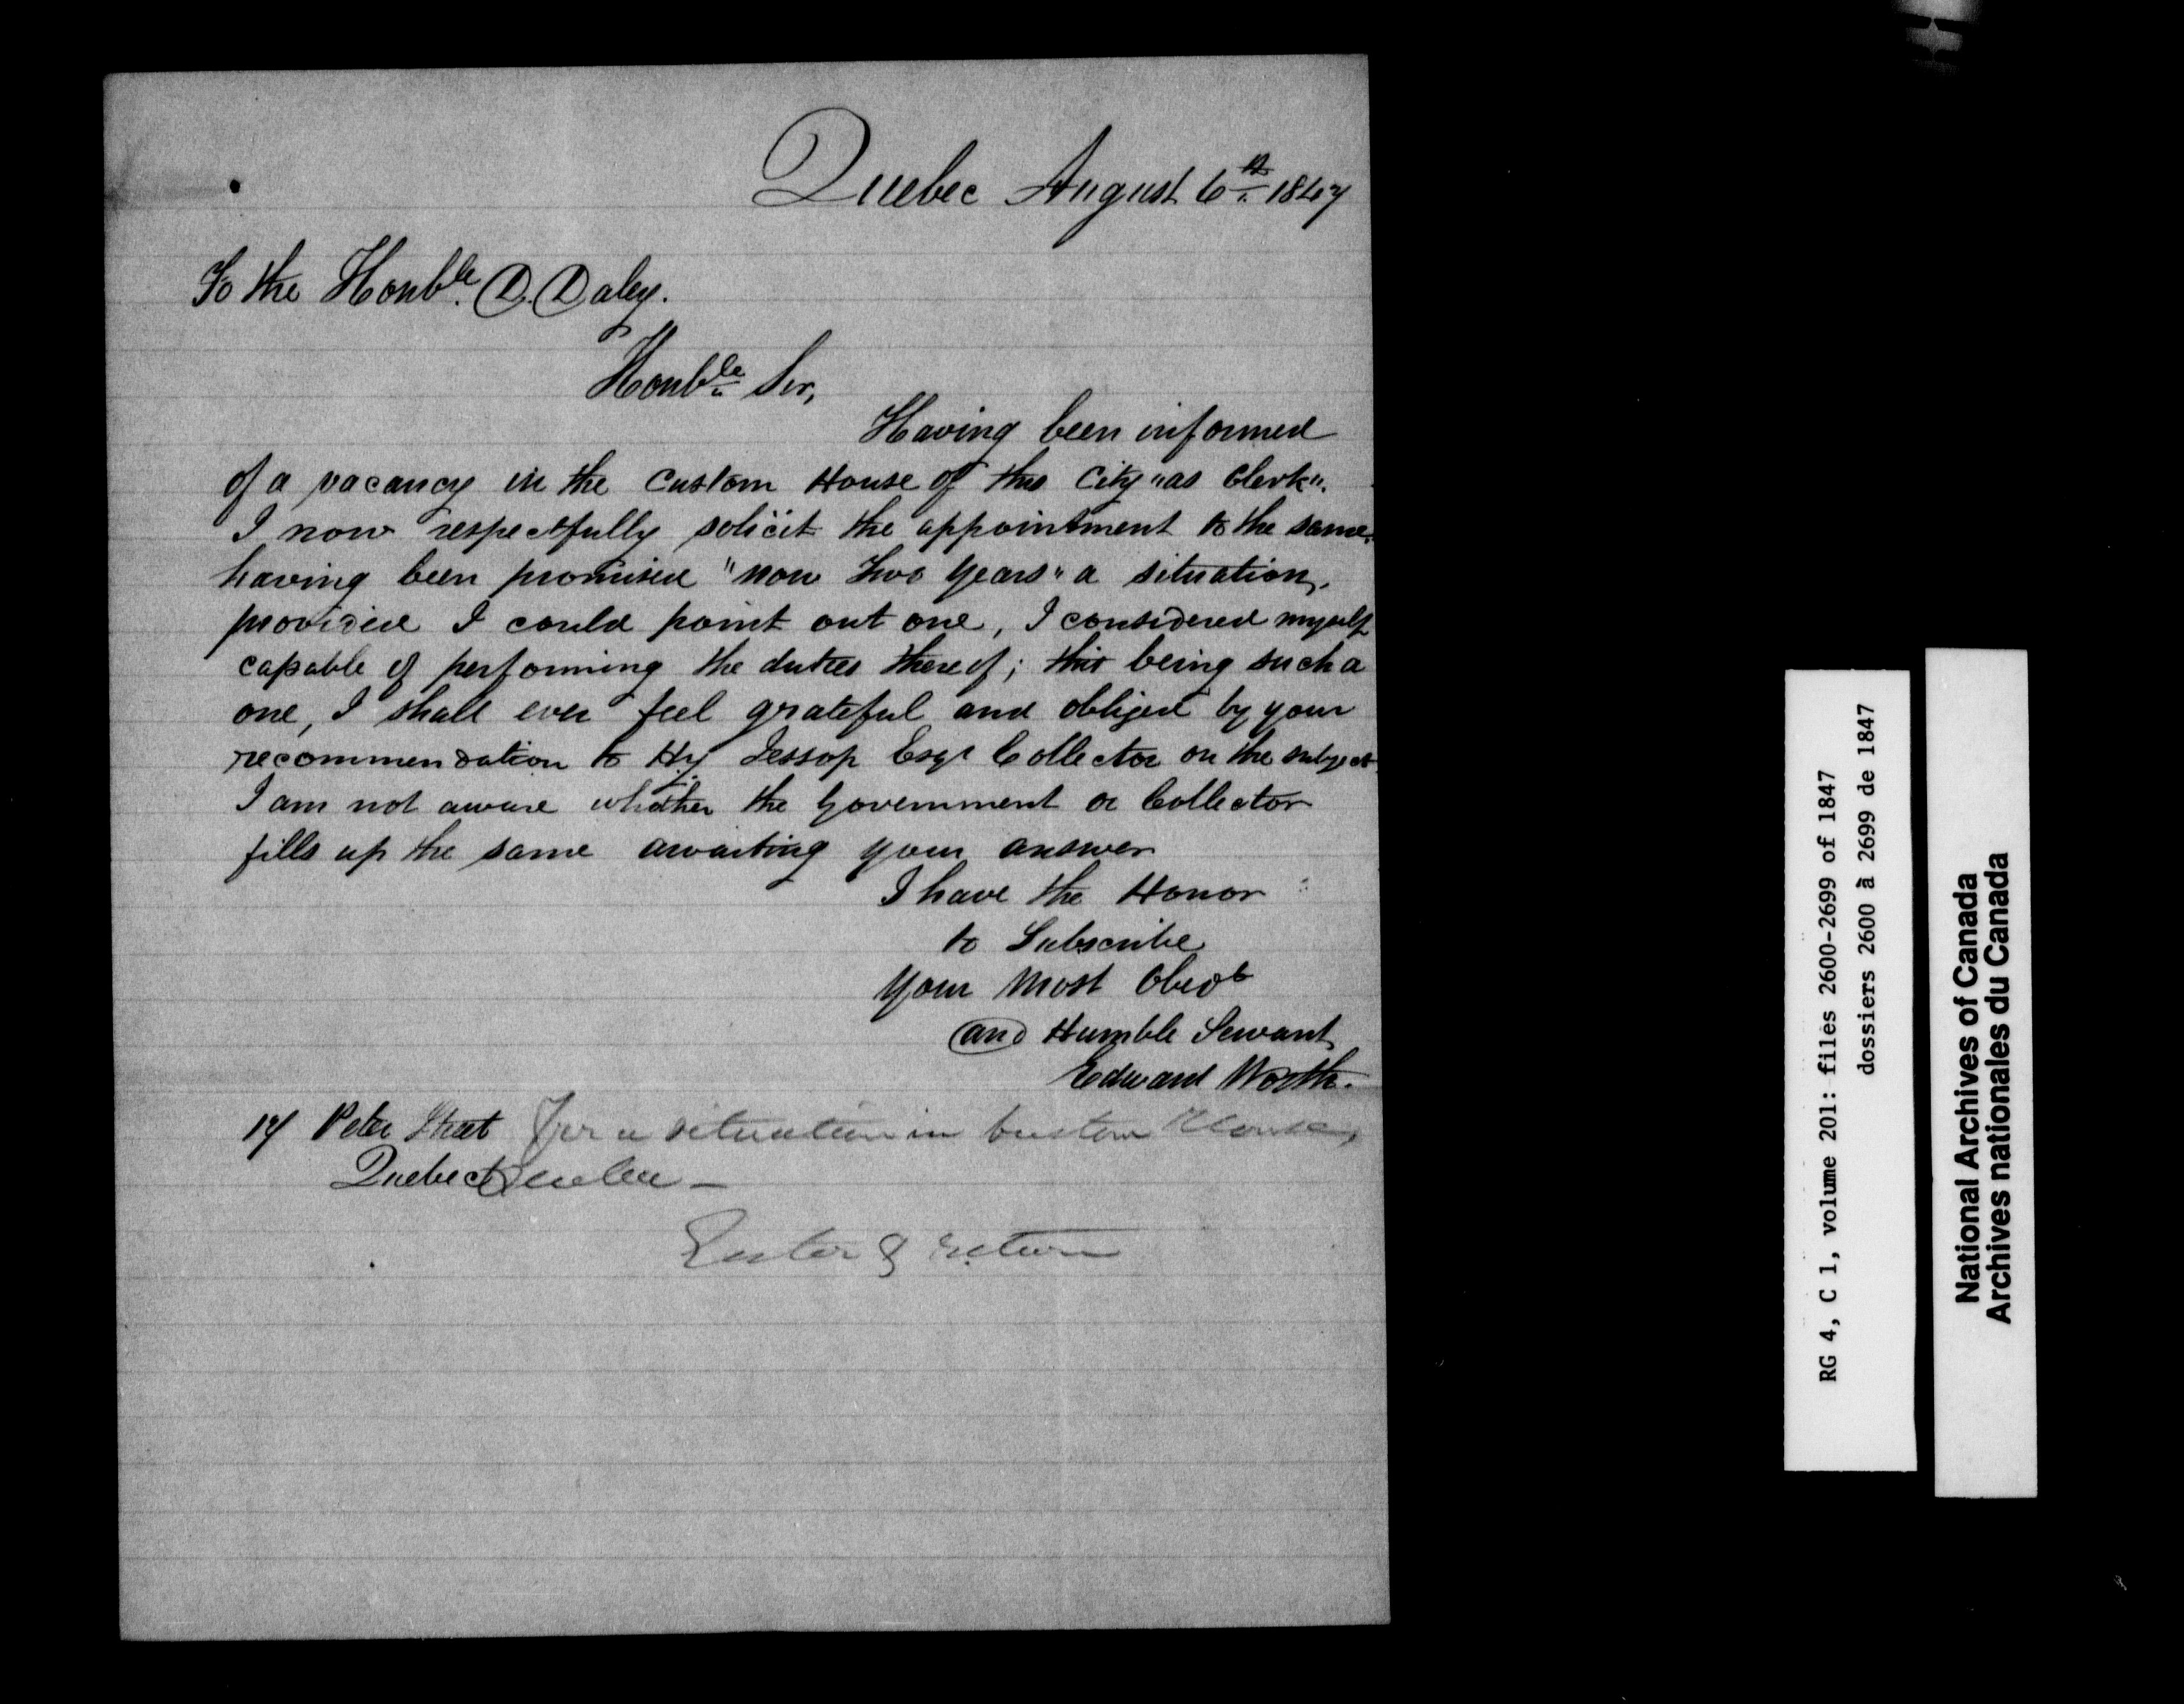 Quebec August 6th 1847
To the Honble. D. Daly.
Honble Sir,
Having been informed
of a vacancy in the Custom House of this City "as Clerk".
I now respectfully solicit the appointment to the same,
having been promised "now two years" a situation,
provided I could point out one, I considered myself
capable of performing the duties thereof; this being such a
one, I shall ever feel grateful and obliged by your
recommendation to Hy Jessop Esqr Collector on the subject
I am not aware whether the Government or Collector
fills up the same awaiting your answer
I have the Honor
to Subscribe
Your Most Obedt
and Humble Servant
Edward Worth.
17 Peter Street
Quebec
For a situation in Custom House,
Quebec -
Enter & return
RG 4, C 1, volume 201: files 2600-2699 of 1847
dossiers 2600 à 2699 de 1847
National Archives of Canada
Archives nationales du Canada